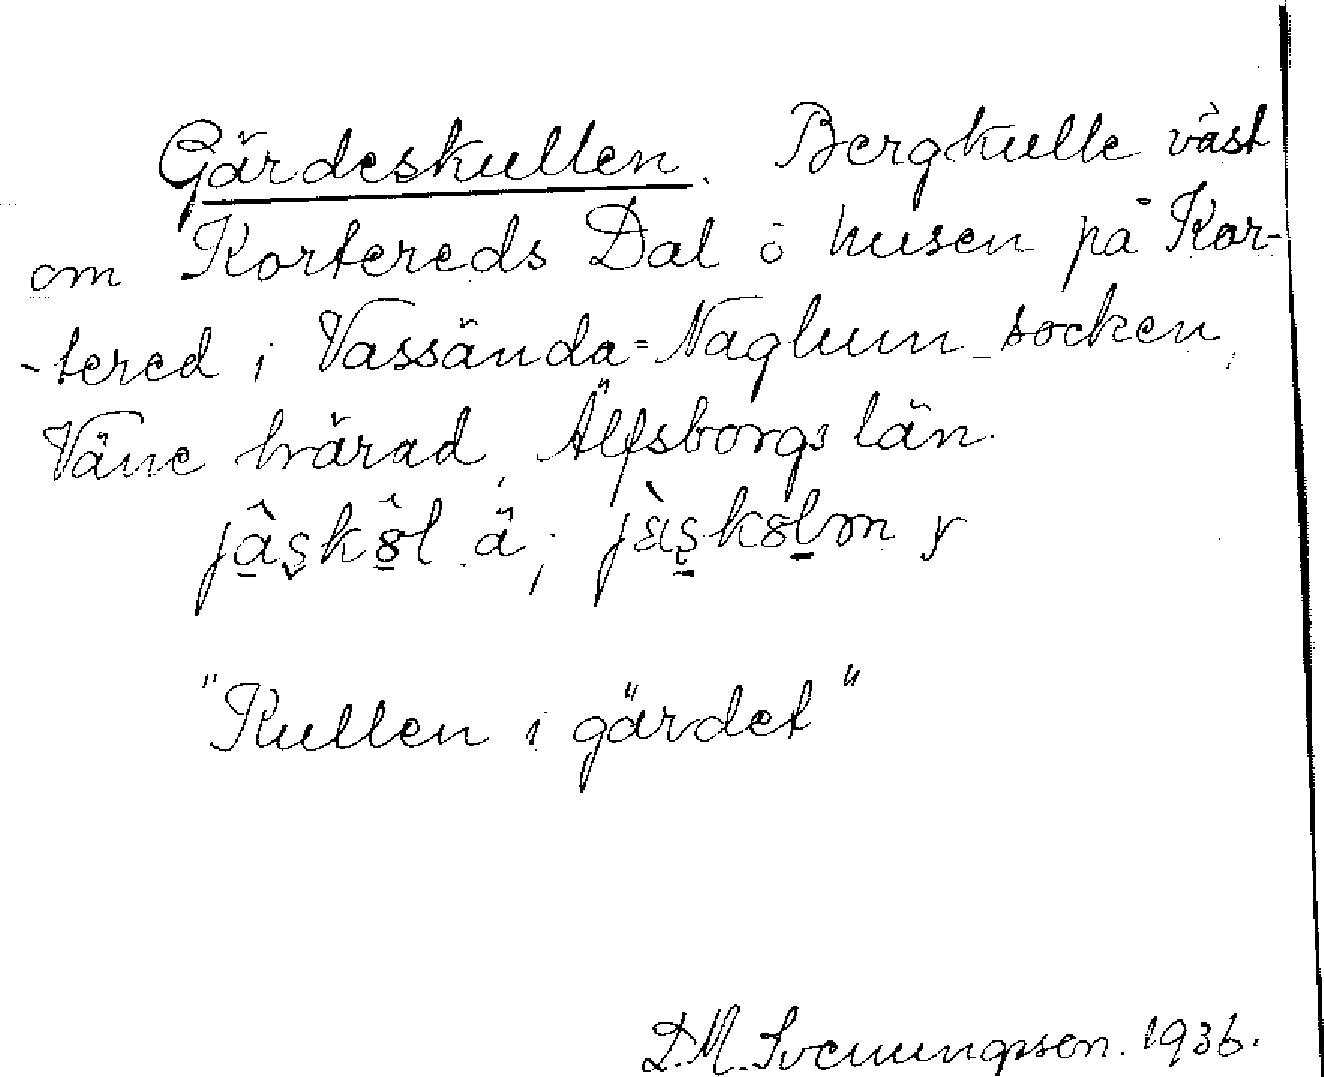 Gärdeskullen. Bergkulle väst
om Kortereds Dal ö husen på Kor-
-tered i Vassända=Naglum socken,
Väne härad, Älfsborgs län.
"Kullen i gärdet"
D.M. Svenungsson. 1936.